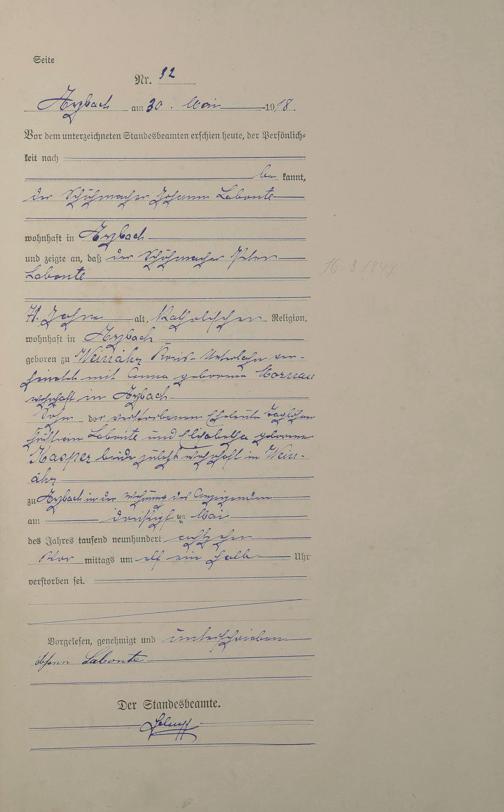 Seite
Nr. 92
Arzbach am 30. Mai 1918.
Vor dem unterzeichneten Standesbeamten erschien heute, der Persönlich-
keit nach
be kannt,
der Schuhmacher Johann Labonte
wohnhaft in Arzbach
und zeigte an, daß der Schuhmacher Peter
Labonte
71 Jahre alt, katholischen Religion,
wohnhaft in Arzbach
geboren zu Weinähr Kreis Unterlahn ver-
heiratet mit Anna geborene
wohnhaft in Arzbach
Sohn der verstorbenen Eheleute Taglöhner
Labonte und Elisabetha geborene
Kasper beide zuletzt wohnhaft in Wein-
ähr
zu Arzbach in der Wohnung des Anzeigenden
am dreißigsten Mai
des Jahres tausend neunhundert achtzehn
Vor mittags um elf ein halb Uhr
verstorben sei.
Vorgelesen, genehmigt und unterschrieben
Johann Labonte
Der Standesbeamte.